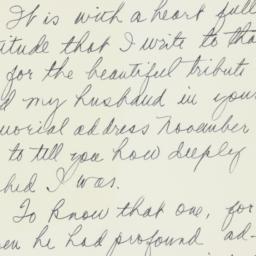 It is with a heart full
titude that I write to tha
for the beautiful tribute
d my husband in your
morial address November
to tell you how deeply
ched I was.
To know that one, for
en he had profound ad-